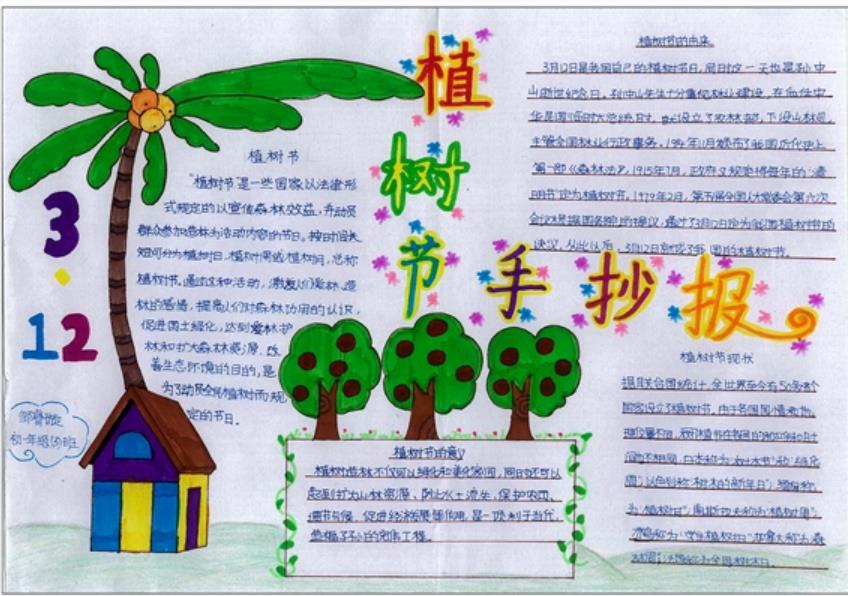 植树节手抄报
3.12
植树节
"植树节"是一些国家以法律形
式规定的以宣传森林效益,并动员
群众参加造林为活动内容的节日。按时间长
短可分为植树日、植树周或植树月,总称
植树节。通过这种活动,激发人们爱林、造
林的感情,提高人们对森林功用的认识,
促进国土绿化,达到爱林护
林和扩大森林资源、改
善生态环境的目的,是
为了动员全民植树而规
定的节日。
初一年级 班
植树节的由来
3月12日是我国自己的植树节日,同时这一天也是孙中
山逝世纪念日。孙中山先生十分重视林业建设,在他任中
华民国临时大总统时,就设立了农林部,下设山林司,
主管全国林业行政事务。1914年11月颁布了我国近代史上
第一部《森林法》。1915年7月,政府又规定将每年的"清
明节"定为植树节。1979年2月,第五届全国人大常委会第六次
会议根据国务院的提议,通过了3月12日为我国植树节的
决议,从此以后,3月12日就成了我国的植树节。
植树节现状
据联合国统计,全世界至今有50多个
国家设立了植树节。由于各国国情
为"植树日"
植树节的意义
植树造林不仅可以绿化和美化家园,同时还可以
起到扩大山林资源、防止水土流失、保护农田、
调节气候、促进经济发展等作用,是一项利于当代、
造福子孙的宏伟工程。